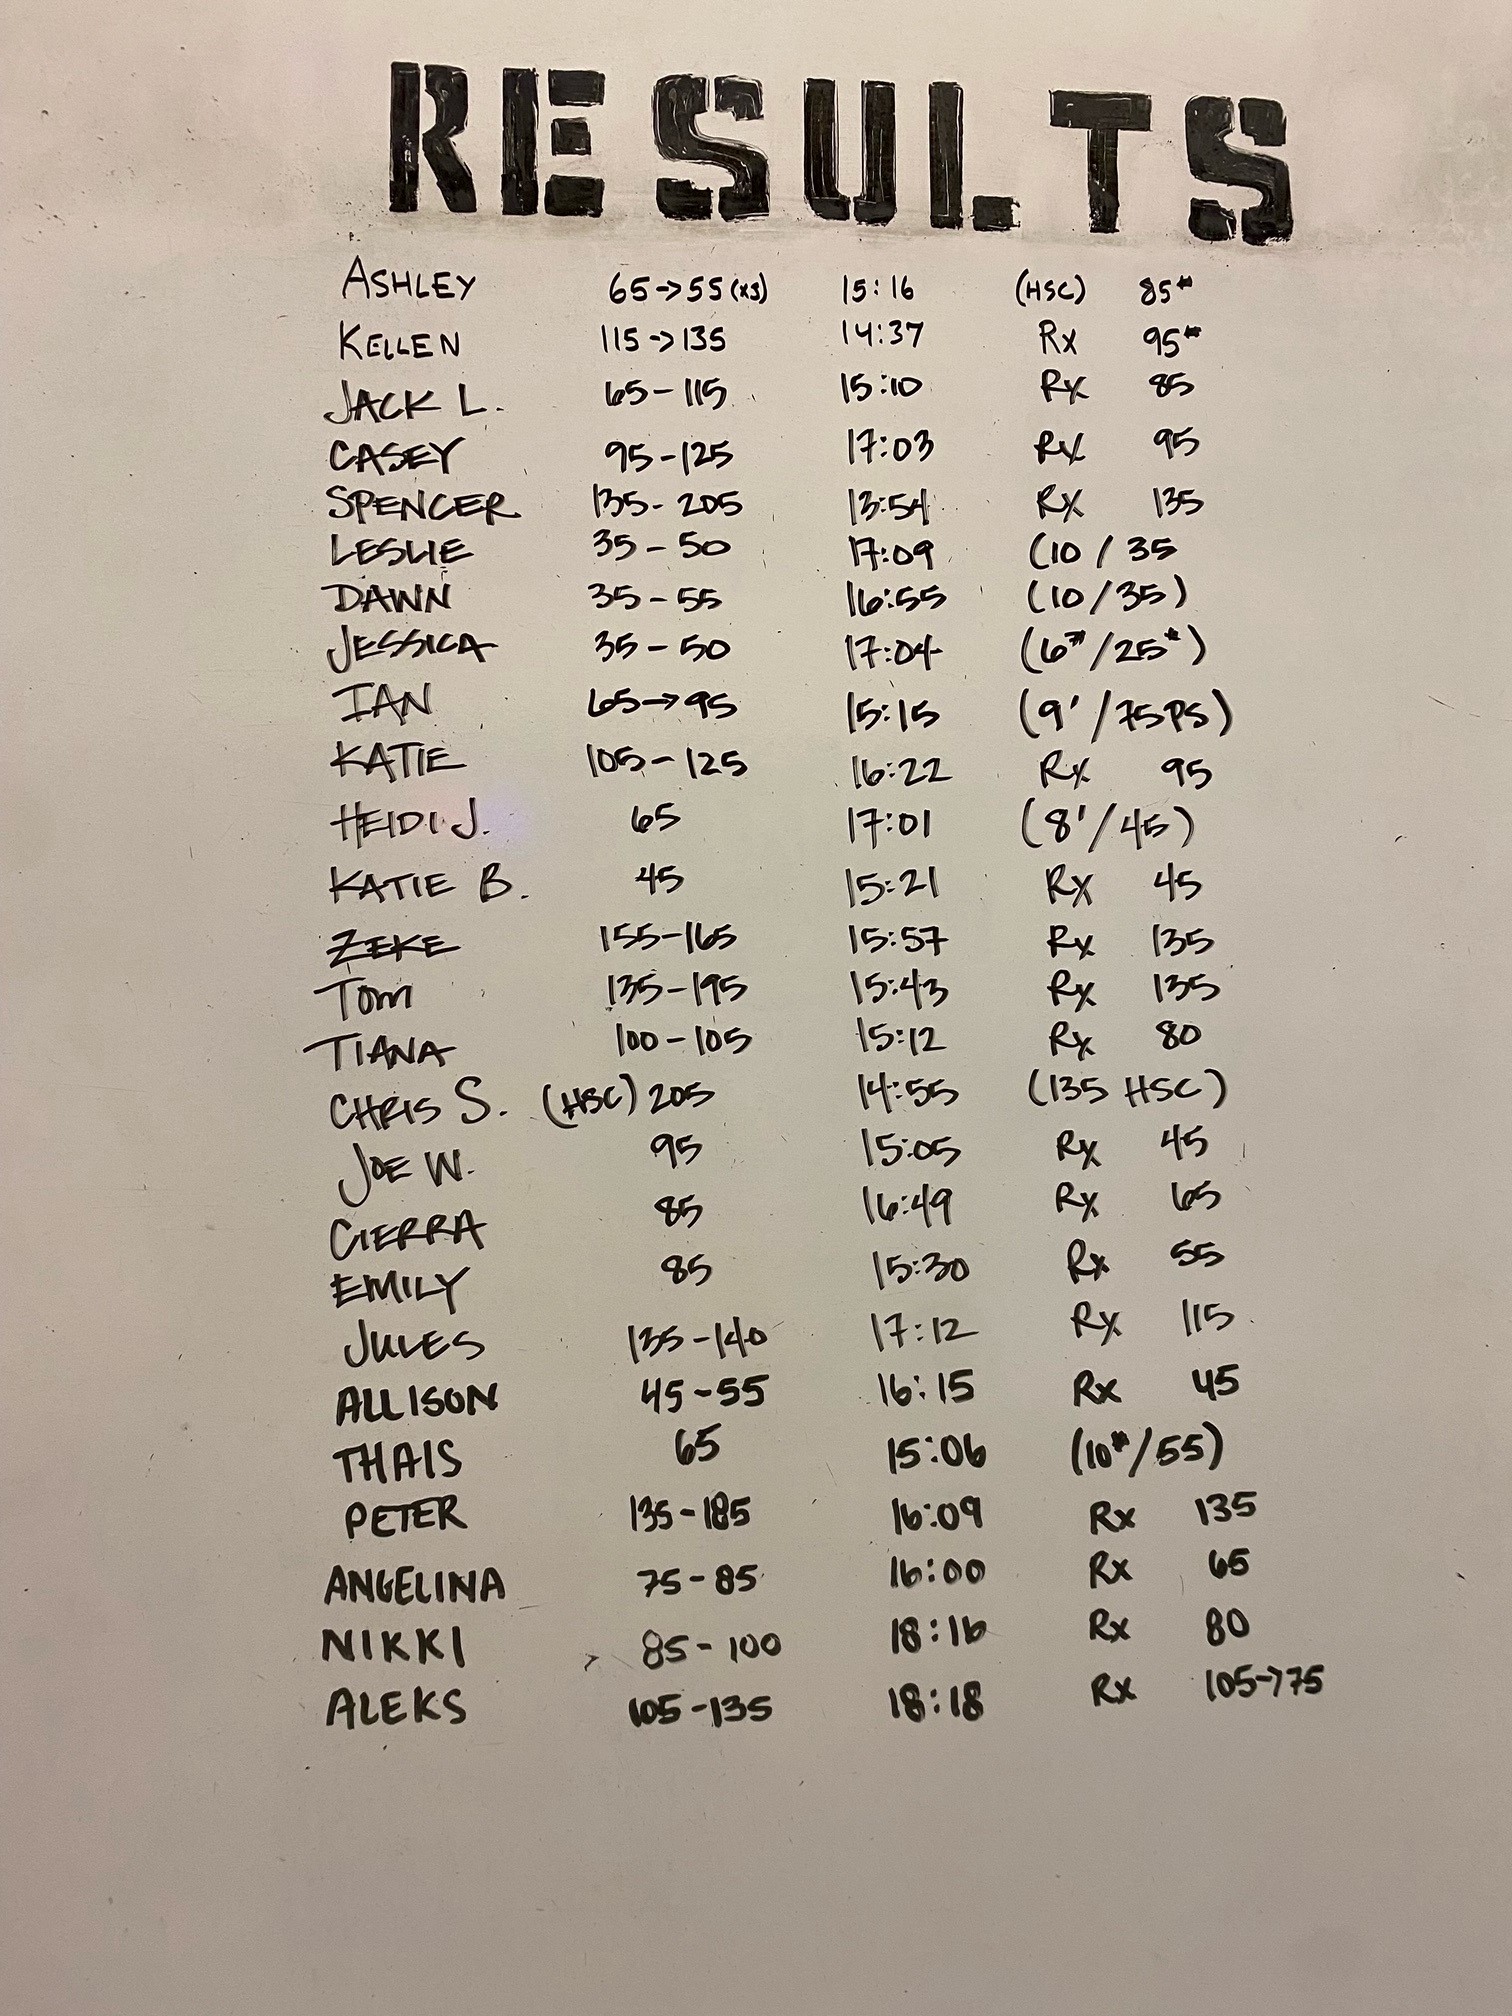 RESULTS
ASHLEY 65→55 (x3) 15:16 (HSC) 85#
KELLEN 115→135 14:37 Rx 95#
JACK L. 65-115 15:10 Rx 85
CASEY 95-125 17:03 Rx 95
SPENCER 135-205 13:54 Rx 135
LESLIE 35-50 17:09 (10/35
DAWN 35-55 16:55 (10/35)
JESSICA 35-50 17:04 (6#/25#)
IAN 65→95 15:15 (9'/75PS)
KATIE 105-125 16:22 Rx 95
HEIDI J. 65 17:01 (8'/45)
KATIE B. 45 15:21 Rx 45
ZEKE 155-165 15:57 Rx 135
TOM 135-195 15:43 Rx 135
TIANA 100-105 15:12 Rx 80
CHRIS S. (HSC) 205 14:55 (135 HSC)
JOE W. 95 15:05 Rx 45
CIERRA 85 16:49 Rx 65
EMILY 85 15:30 Rx 55
JULES 135-140 17:12 Rx 115
ALLISON 45-55 16:15 Rx 45
THAIS 65 15:06 (10#/55)
PETER 135-185 16:09 Rx 135
ANGELINA 75-85 16:00 Rx 65
NIKKI 85-100 18:16 Rx 80
ALEKS 105-135 18:18 Rx 105→75